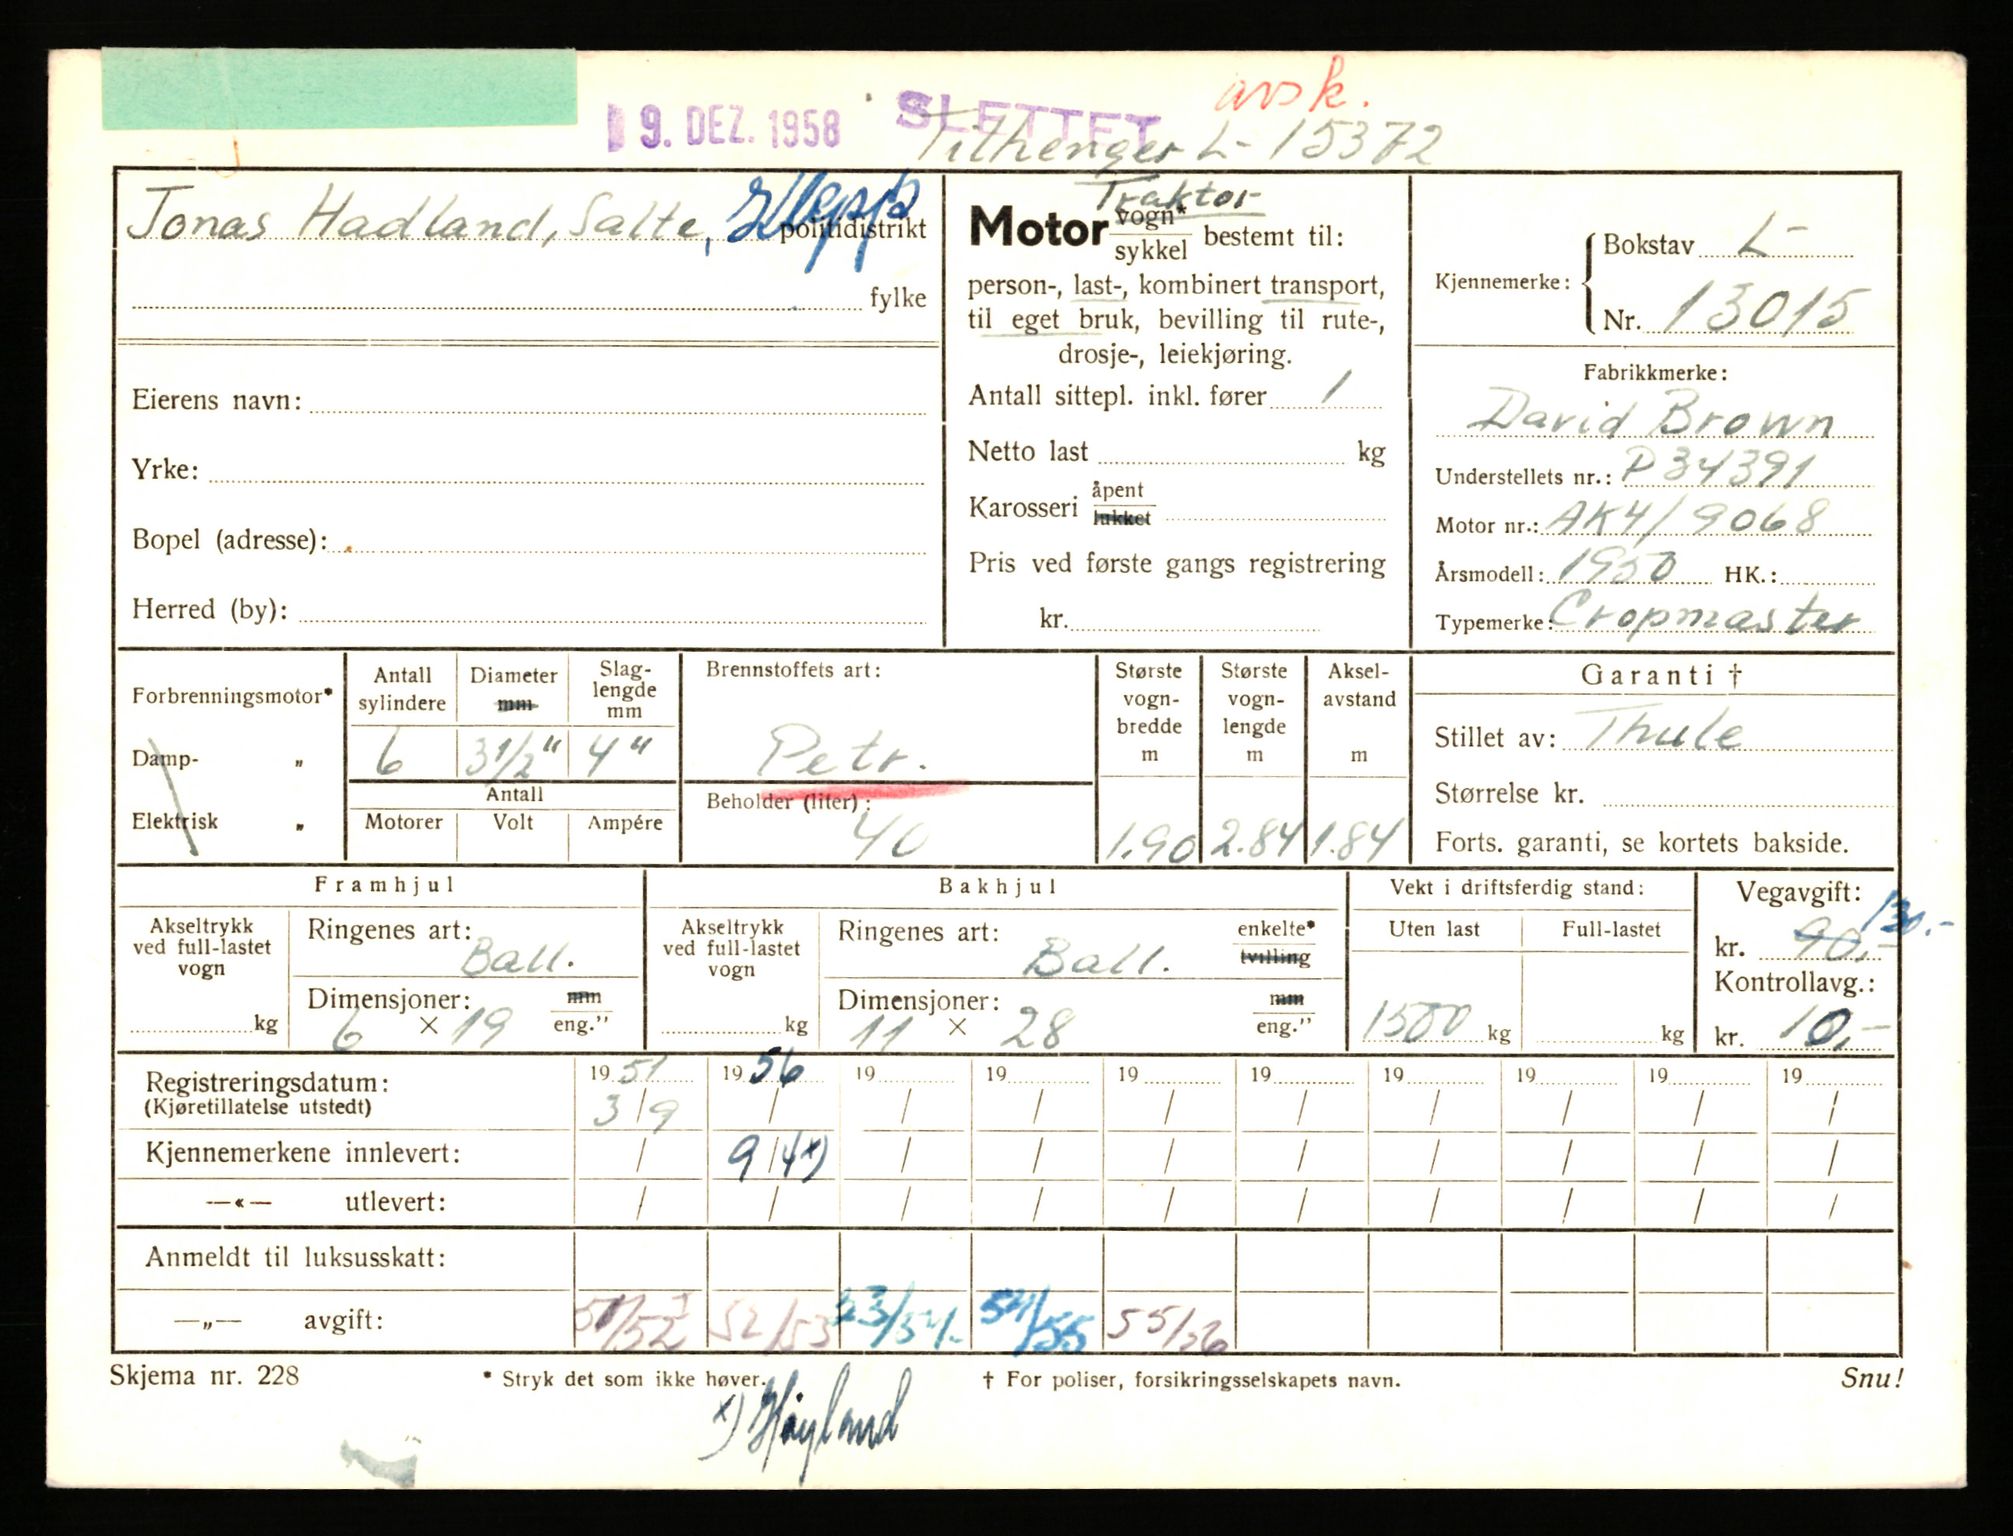 avsk.
9. DEZ. 1958 SLETTET
Tilhenger L- 15372
Jonas Hadland, Salte, Klepp politidistrikt
fylke
Eierens navn:
Yrke:
Bopel (adresse):
Herred (by):
Traktor
Motor vogn* sykkel bestemt til:
person-, last-, kombinert transport,
til eget bruk, bevilling til rute-,
drosje-, leiekjøring.
Antall sittepl. inkl. fører 1
Netto last kg
Karosseri åpent lukket
Pris ved første gangs registrering
kr.
Kjennemerke: Bokstav L-
Nr. 13015
Fabrikkmerke:
David Brown
Understellets nr.: P34391
Motor nr.: AK4/9068
Årsmodell: 1950 HK.:
Typemerke: Cropmaster
Forbrenningsmotor*
Damp- „
Elektrisk „
Antall sylindere
Diameter mm
Slag-lengde mm
6 3 1/2" 4"
Antall
Motorer Volt Ampére
Brennstoffets art:
Petr.
Beholder (liter):
40
Største vogn-bredde m
Største vogn-lengde m
Aksel-avstand m
1.90 2.84 1.84
Garanti †
Stillet av: Thule
Størrelse kr.
Forts. garanti, se kortets bakside.
Framhjul
Akseltrykk ved full-lastet vogn
kg
Ringenes art:
Ball.
Dimensjoner: mm
6 × 19 eng."
Bakhjul
Akseltrykk ved full-lastet vogn
kg
Ringenes art: enkelte*
Ball. tvilling
Dimensjoner: mm
11 × 28 eng."
Vekt i driftsferdig stand:
Uten last Full-lastet
1500 kg kg
Vegavgift:
130.-
kr. 90,-
Kontrollavg.:
kr. 10,-
Registreringsdatum: 19 51 19 56 19 19 19 19 19 19 19 19
(Kjøretillatelse utstedt) 3/9 / / / / / / / / /
Kjennemerkene innlevert: / 9/4 x) / / / / / / / /
—«— utlevert: / / / / / / / / / /
Anmeldt til luksusskatt:
—„— avgift: 51/52 52/53 53/54. 54/55 55/56
Skjema nr. 228 * Stryk det som ikke høver. † For poliser, forsikringsselskapets navn. Snu!
x) Høyland